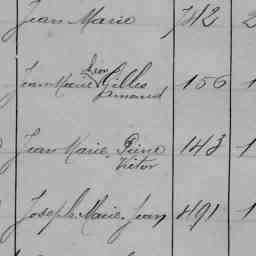 Jean Marie 742 2
Léon
Jean Marie Gilles 156 1
Armand
Jean Marie, Pierre 143 1
Victor
Joseph Marie, Jean 491 1